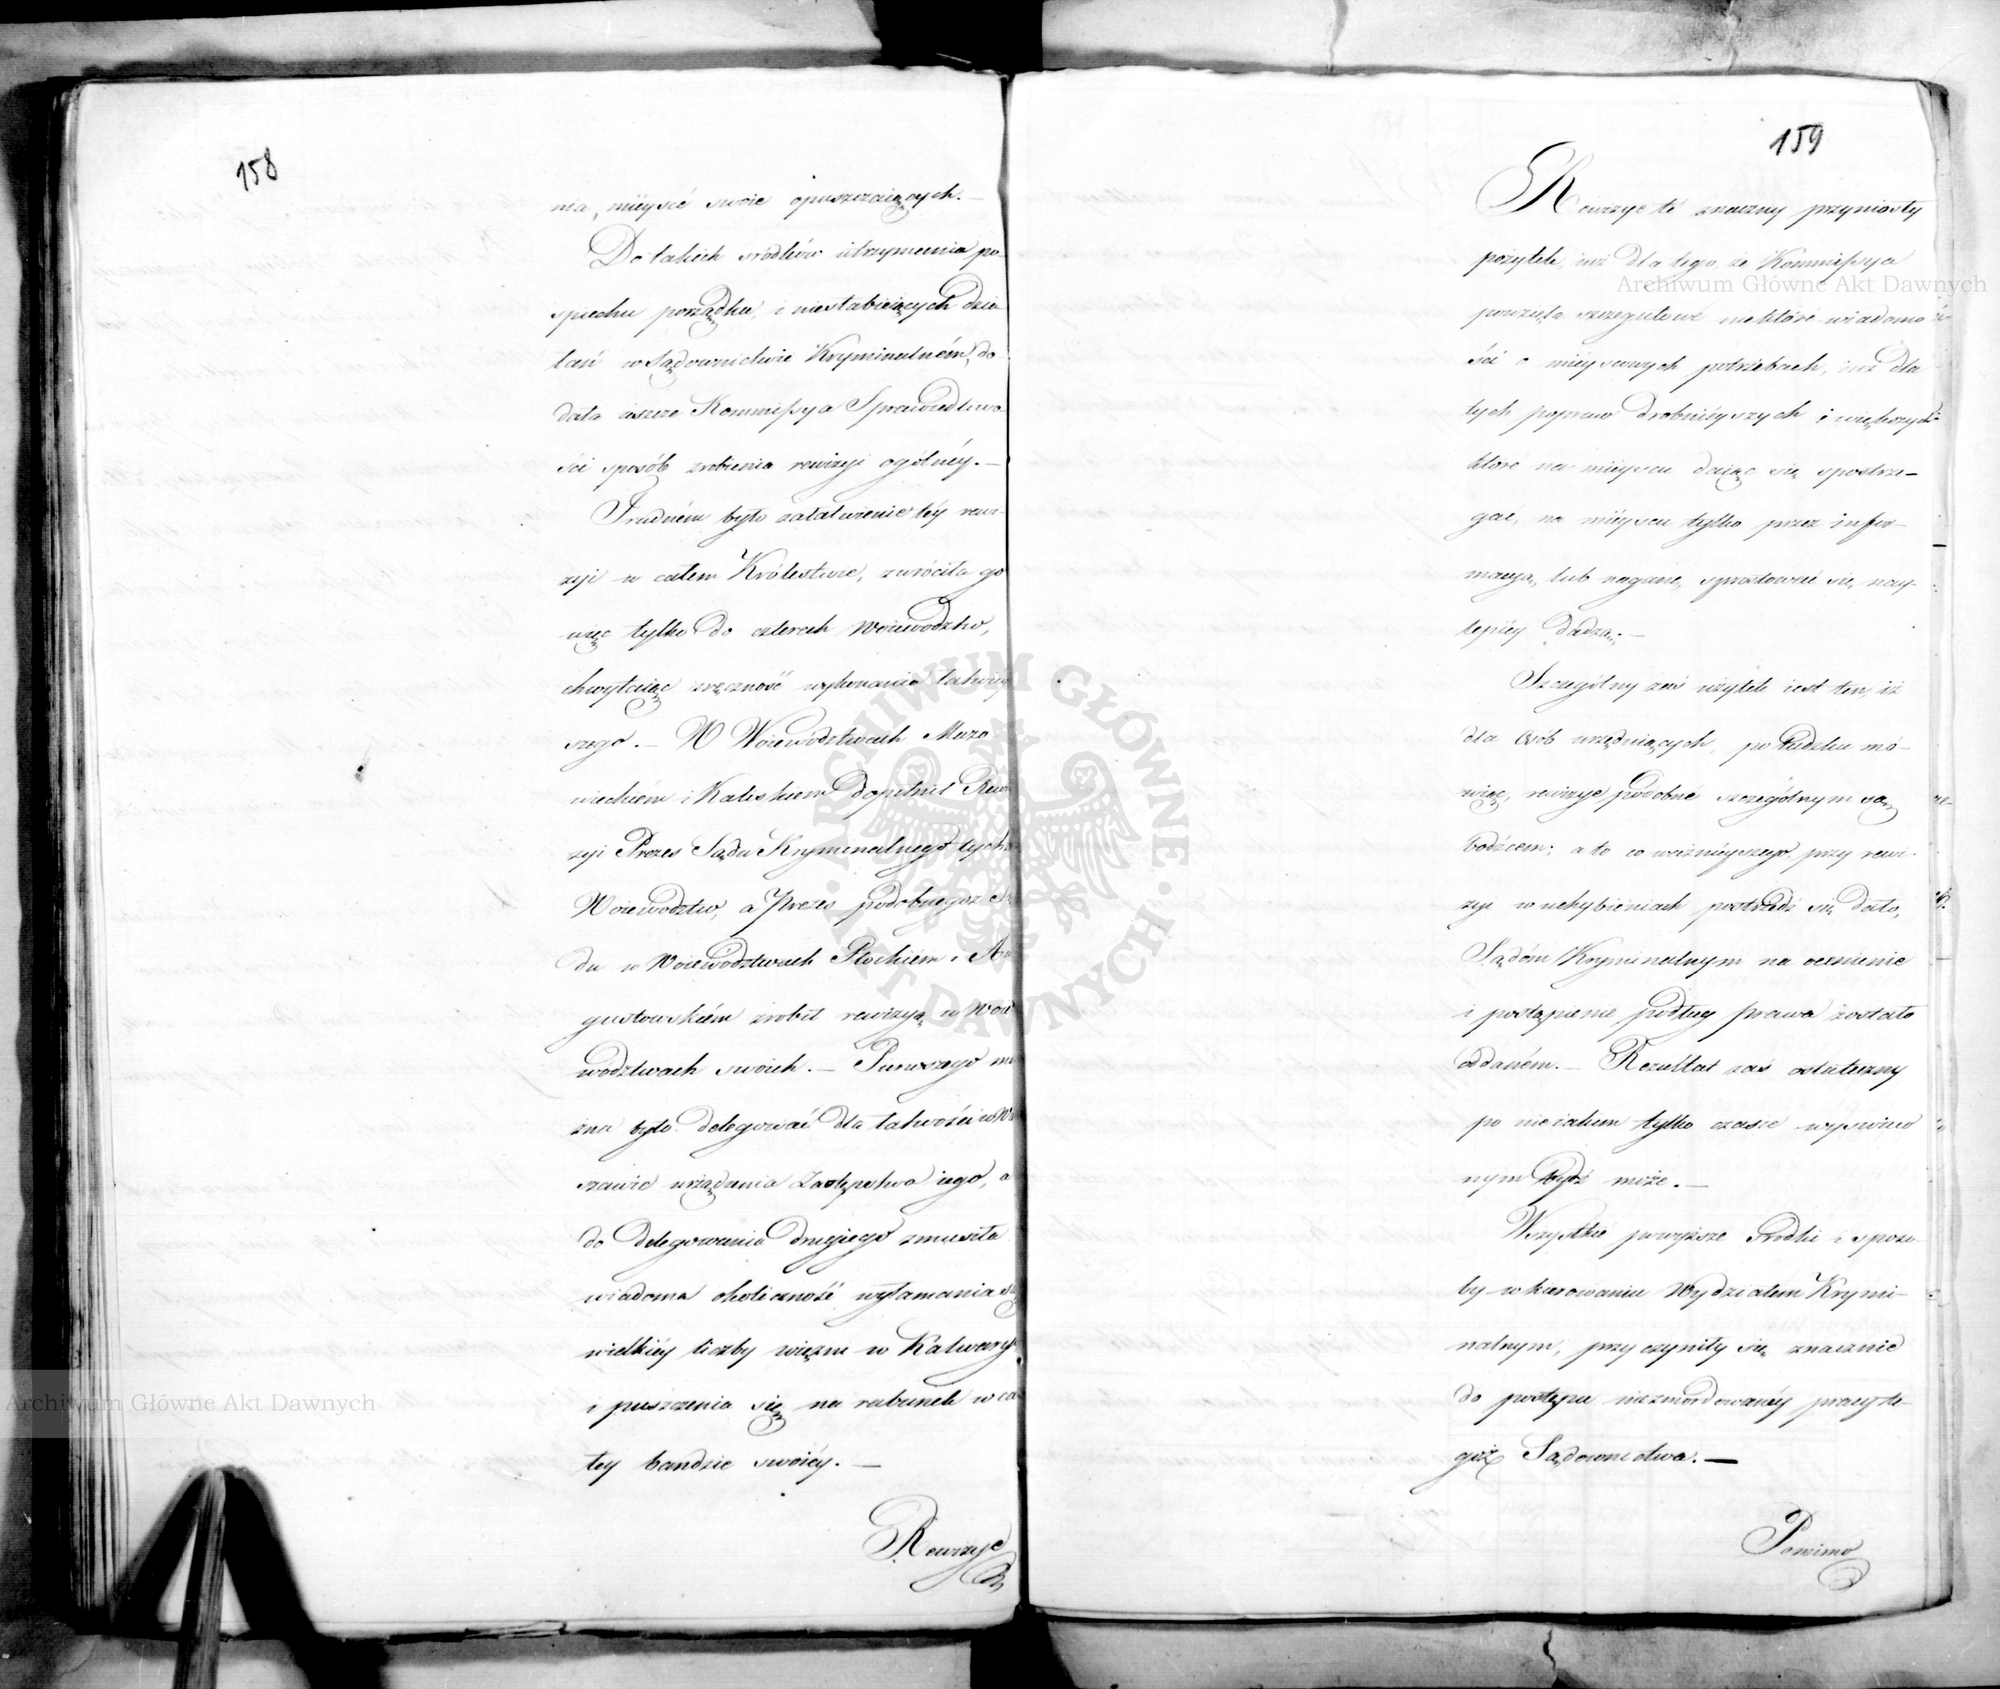 158
nia, mieysce swoie opuszczaiących. —
Do takich srodków utrzymania po-
spiechu porządku, i niesłabieiących dzia
łań w Sądownictwie Kryminalném, do
dała ieszcze Kommissya Sprawiedliwo
ści sposób zrobienia rewizyi ogólnéy. —
Trudném było załatwienie téy rewi-
zyi w całem Królestwie, zwróciła go
więc tylko do czterech Woiewództw,
chwytaiąc zręczność wykonania łatwiéy
szego. — W Woiewództwach Mazo
wieckiém i Kaliskiem dopełnił Rewi
zyi Prezes Sądu Kryminalnego tychże
Woiewództw, a Prezes podobnegoż Są
du w Woiewództwach Płockiém i Au
gustowskiém zrobił rewizyą w Woie
wództwach swoich. — Pierwszego mo
żna było delegować dla łatwości w War
szawie urządzenia Zastępstwa iego, a
do delegowania drugiego zmusiła
wiadoma okoliczność wyłamania się
wielkiéy liczby więźni w Kalwaryi
i puszczenia się na rabunek w ca
łey bandzie swoiéy. —
Rewizye
159
Rewizye té znaczny przyniosły
pożytek, iuż dla tego, że Kommissya
powzięła szczegułowé niektóre wiadomo
ści o mieyscowych potrzebach, iuż dla
tych popraw drobnieyszych i większych
które na mieyscu daiąc się spostrze-
gać, na mieyscu tylko przez infor-
macyą, lub naganę, sprostować się nay-
lepiéy dadzą. —
Szczególny zaś użytek iest ten, iż
dla osób urzęduiących, po ludzku mó-
wiąc, rewizye podobné szczególnym są
bodźcem; a to co ważnieyszego, przy rewi-
zyi w uchybieniach postrzedz się dało,
Sądóm Kryminalnym na ocenienie
i postąpienie podług prawa zostało
oddaném. — Rezultat zaś ostateczny
po nieiakim tylko czasie wyswieco
nym bydź może. —
Wszystkié powyższe srodki i sposo-
by w kierowaniu Wydziałem Krymi-
nalnym, przyczyniły się znacznie
do postępu niezmordowanéy pracy te-
goż Sądownictwa. —
Pomimo
Archiwum Główne Akt Dawnych
Archiwum Główne Akt Dawnych
ARCHIWUM GŁÓWNE · AKT DAWNYCH ·